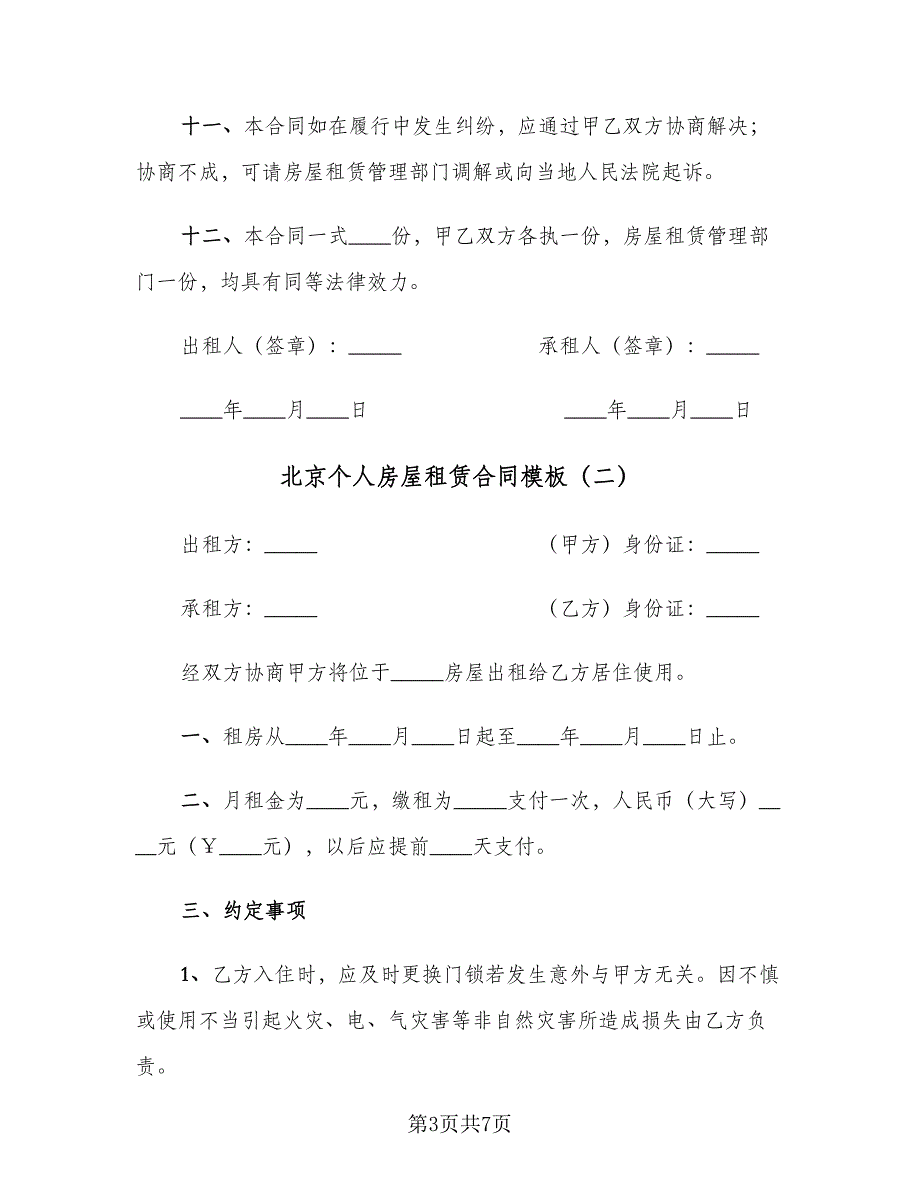 十一、本合同如在履行中发生纠纷，应通过甲乙双方协商解决；
协商不成，可请房屋租赁管理部门调解或向当地人民法院起诉。
十二、本合同一式____份，甲乙双方各执一份，房屋租赁管理部
门一份，均具有同等法律效力。
出租人（签章）：_____ 承租人（签章）：_____
____年____月____日 ____年____月____日
北京个人房屋租赁合同模板（二）
出租方：_____ （甲方）身份证：_____
承租方：_____ （乙方）身份证：_____
经双方协商甲方将位于_____房屋出租给乙方居住使用。
一、租房从____年____月____日起至____年____月____日止。
二、月租金为____元，缴租为_____支付一次，人民币（大写）__
__元（￥____元），以后应提前____天支付。
三、约定事项
1、乙方入住时，应及时更换门锁若发生意外与甲方无关。因不慎
或使用不当引起火灾、电、气灾害等非自然灾害所造成损失由乙方负
责。
第3页共7页